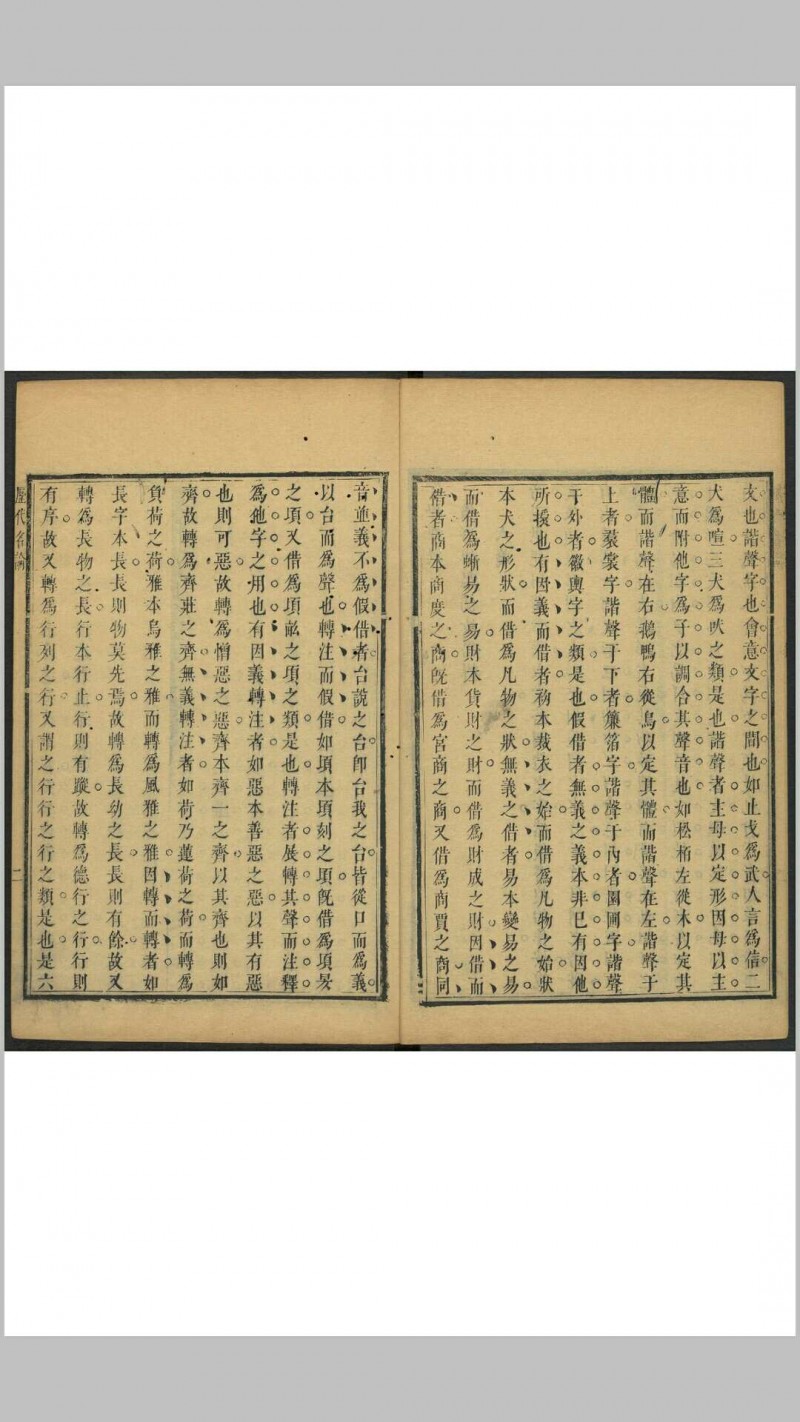 文也諧聲字也會意文字之間也如止戈爲武人言爲信二
犬爲㹜三犬爲猋之類是也諧聲者主母以定形因母以主
意而附他字爲子以調合其聲音也如松栢左從木以定其
體而諧聲在右鵝鴨右從鳥以定其體而諧聲在左諧聲于
上者裂裳字諧聲于下者簾箔字諧聲于內者園圃字諧聲
于外者徽輿字之類是也假借者無義之義本非巳有因他
所援也有因義而借者初本裁衣之始而借爲凡物之始狀
本犬之形狀而借爲凡物之狀無義之借者易本變易之易
而借爲蜥易之易財本貨財之財而借爲財成之財因借而
借者商本商度之商旣借爲宮商之商又借爲商賈之商同
音並義不爲假借者台說之台卽台我之台皆從口而爲義
以台而爲聲也轉注而假借如頃本頃刻之頃旣借爲頃㫇
之頃又借爲頃畝之頃之類是也轉注者展轉其聲而注釋
爲他字之用也有因義轉注者如惡本善惡之惡以其有惡
也則可惡故轉爲憎惡之惡齊本齊一之齊以其齊也則如
齊故轉爲齊莊之齊無義轉注者如荷乃蓮荷之荷而轉爲
負荷之荷雅本烏雅之雅而轉爲風雅之雅因轉而轉者如
長字本長長則物莫先焉故轉爲長幼之長長則有餘故又
轉爲長物之長行本行止行則有蹤故轉爲德行之行行則
有序故又轉爲行列之行又謂之行行之行之類是也是六
歷代名論
二